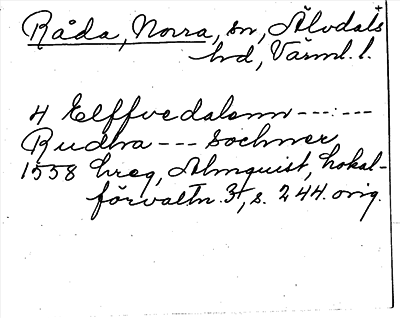 Råda, Norra, sn, Älvdals
hd, Värml. l.
4 Elffvedalenn ---:---
Rudha --- Sochner
1558 hreg, Almquist, Lokal-
förvaltn. 3, s. 244. orig.